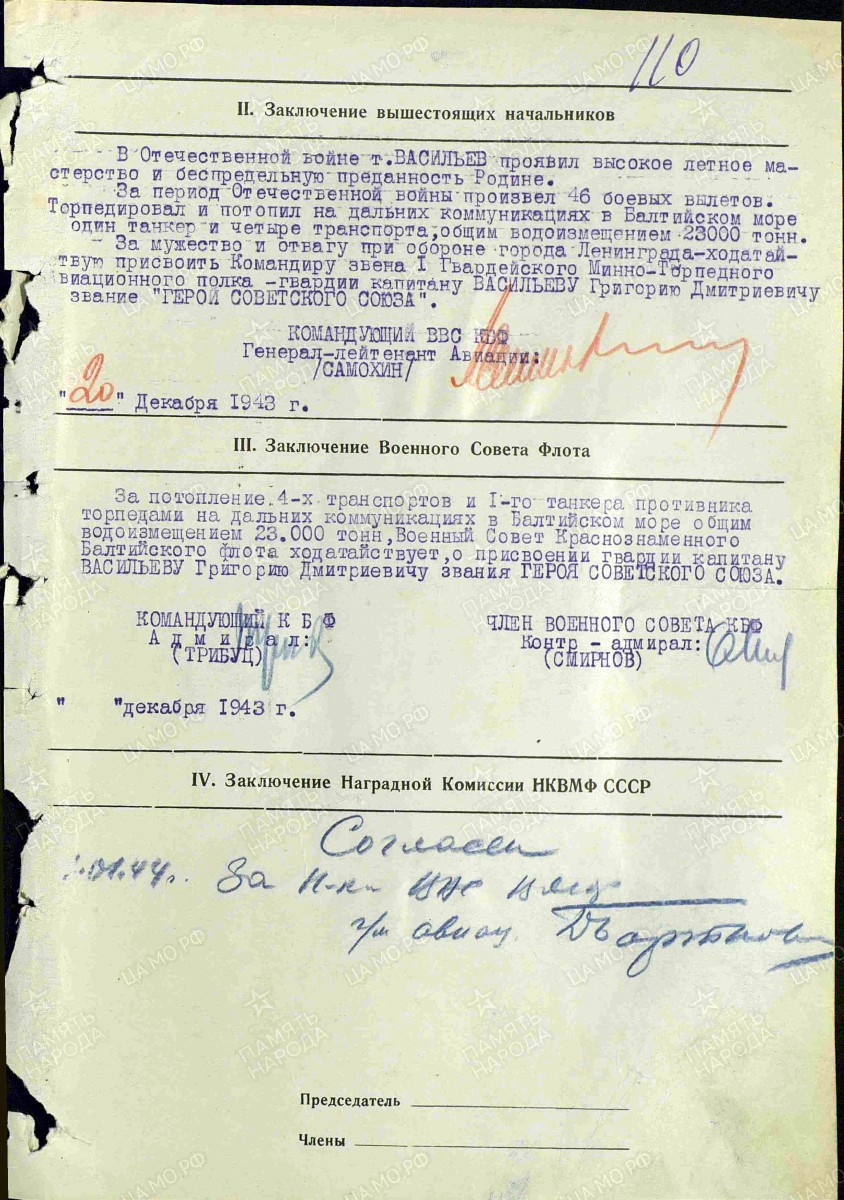 110
II. Заключение вышестоящих начальников
В Отечественной войне т.ВАСИЛЬЕВ проявил высокое летное ма-
стерство и беспредельную преданность Родине.
За период Отечественной войны произвел 46 боевых вылетов.
Торпедировал и потопил на дальних коммуникациях в Балтийском море
один танкер и четыре транспорта, общим водоизмещением 23000 тонн.
За мужество и отвагу при обороне города Ленинграда-ходатай-
твую присвоить Командиру звена I Гвардейского Минно-Торпедного
виационного полка -гвардии капитану ВАСИЛЬЕВУ Григорию Дмитриевичу
звание "ГЕРОЙ СОВЕТСКОГО СОЮЗА".
КОМАНДУЮЩИЙ ВВС КБФ
Генерал-лейтенант Авиации:
/САМОХИН/
"20" Декабря 1943 г.
III. Заключение Военного Совета Флота
За потопление 4-х транспортов и I-го танкера противника
торпедами на дальних коммуникациях в Балтийском море общим
водоизмещением 23.000 тонн, Военный Совет Краснознаменного
Балтийского флота ходатайствует, о присвоении гвардии капитану
ВАСИЛЬЕВУ Григорию Дмитриевичу звания ГЕРОЯ СОВЕТСКОГО СОЮЗА.
КОМАНДУЮЩИЙ К Б Ф
А д м и р а л:
(ТРИБУЦ)
ЧЛЕН ВОЕННОГО СОВЕТА КБФ
Контр - адмирал:
(СМИРНОВ)
" "декабря 1943 г.
IV. Заключение Наградной Комиссии НКВМФ СССР
Согласен
.01.44г. За Н-ка
г/м авиац.
Председатель
Члены